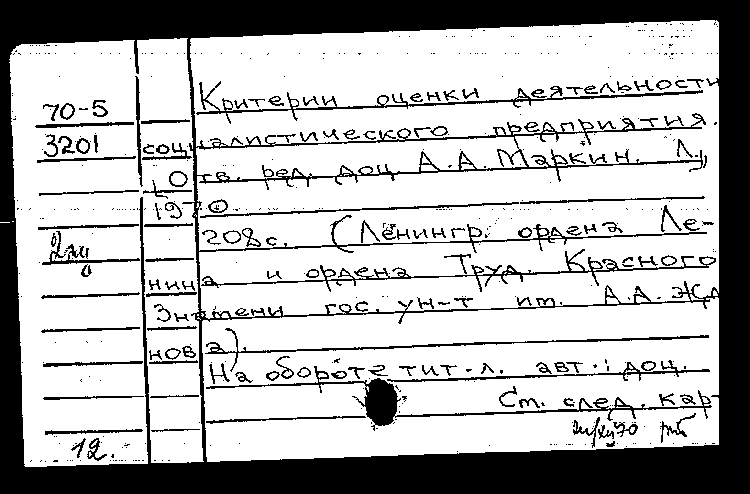 70-5
3201
Критерии оценки деятельности
социалистического предприятия.
Отв. ред. доц. А.А. Маркин. Л.,
1970.
208с. (Ленингр. ордена Ле-
нина и ордена Труд. Красного
Знамени гос. ун-т им. А.А. Жда
нова).
На обороте тит. л. авт.: доц.
См. след. кар-
12.